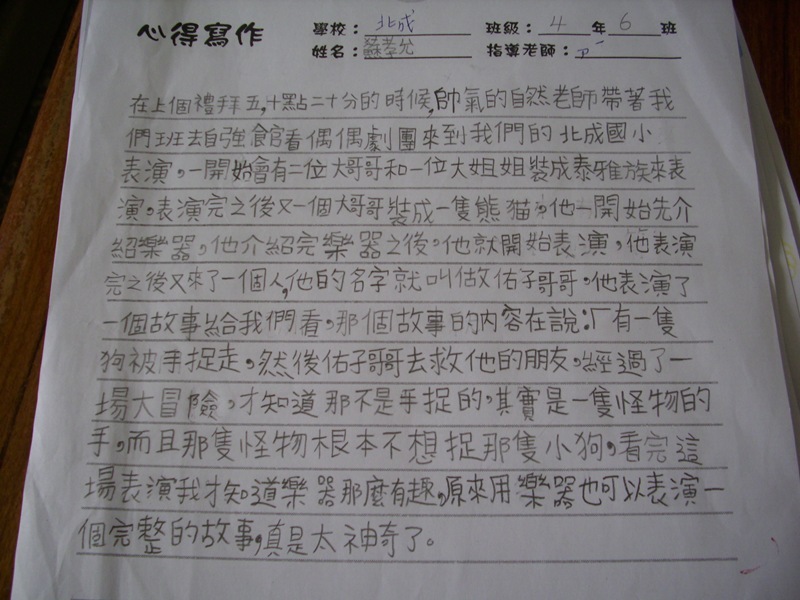 心得寫作
學校：北成 班級：4年6班
姓名：蘇孝允 指導老師：
在上個禮拜五,十點二十分的時候,帥氣的自然老師帶著我
們班去自強館看偶偶劇團來到我們的北成國小
表演。一開始會有一位大哥哥和一位大姐姐裝成泰雅族來表
演。表演完之後又一個大哥哥裝成一隻熊猫，他一開始先介
紹樂器，他介紹完樂器之後，他就開始表演，他表演
完之後又來了一個人,他的名字就叫做佑子哥哥。他表演了
一個故事給我們看，那個故事的內容在說：「有一隻
狗被手捉走，然後佑子哥哥去救他的朋友，經過了一
場大冒險，才知道那不是手捉的，其實是一隻怪物的
手，而且那隻怪物根本不想捉那隻小狗。看完這
場表演我才知道樂器那麼有趣，原來用樂器也可以表演一
個完整的故事，真是太神奇了。